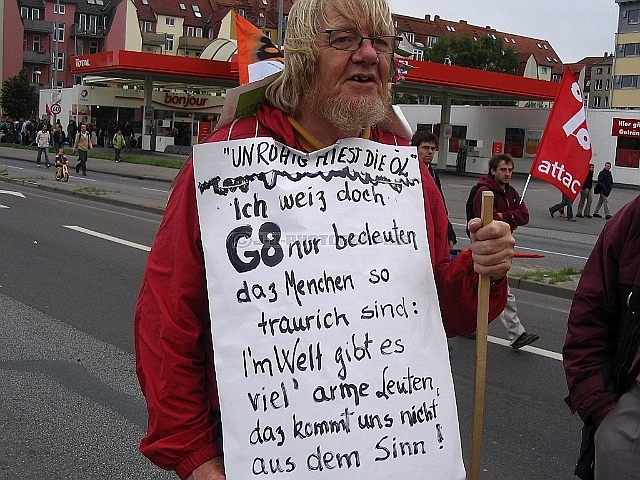 TOTAL
bonjour
Hier gi
attac
"UNRUHIG HIEST DIE ÖL"
Ich weiz doch
G8 nur bedeuten
daz Menchen so
traurich sind:
I'm Welt gibt es
viel' arme Leuten,
daz kommt uns nicht
aus dem Sinn!